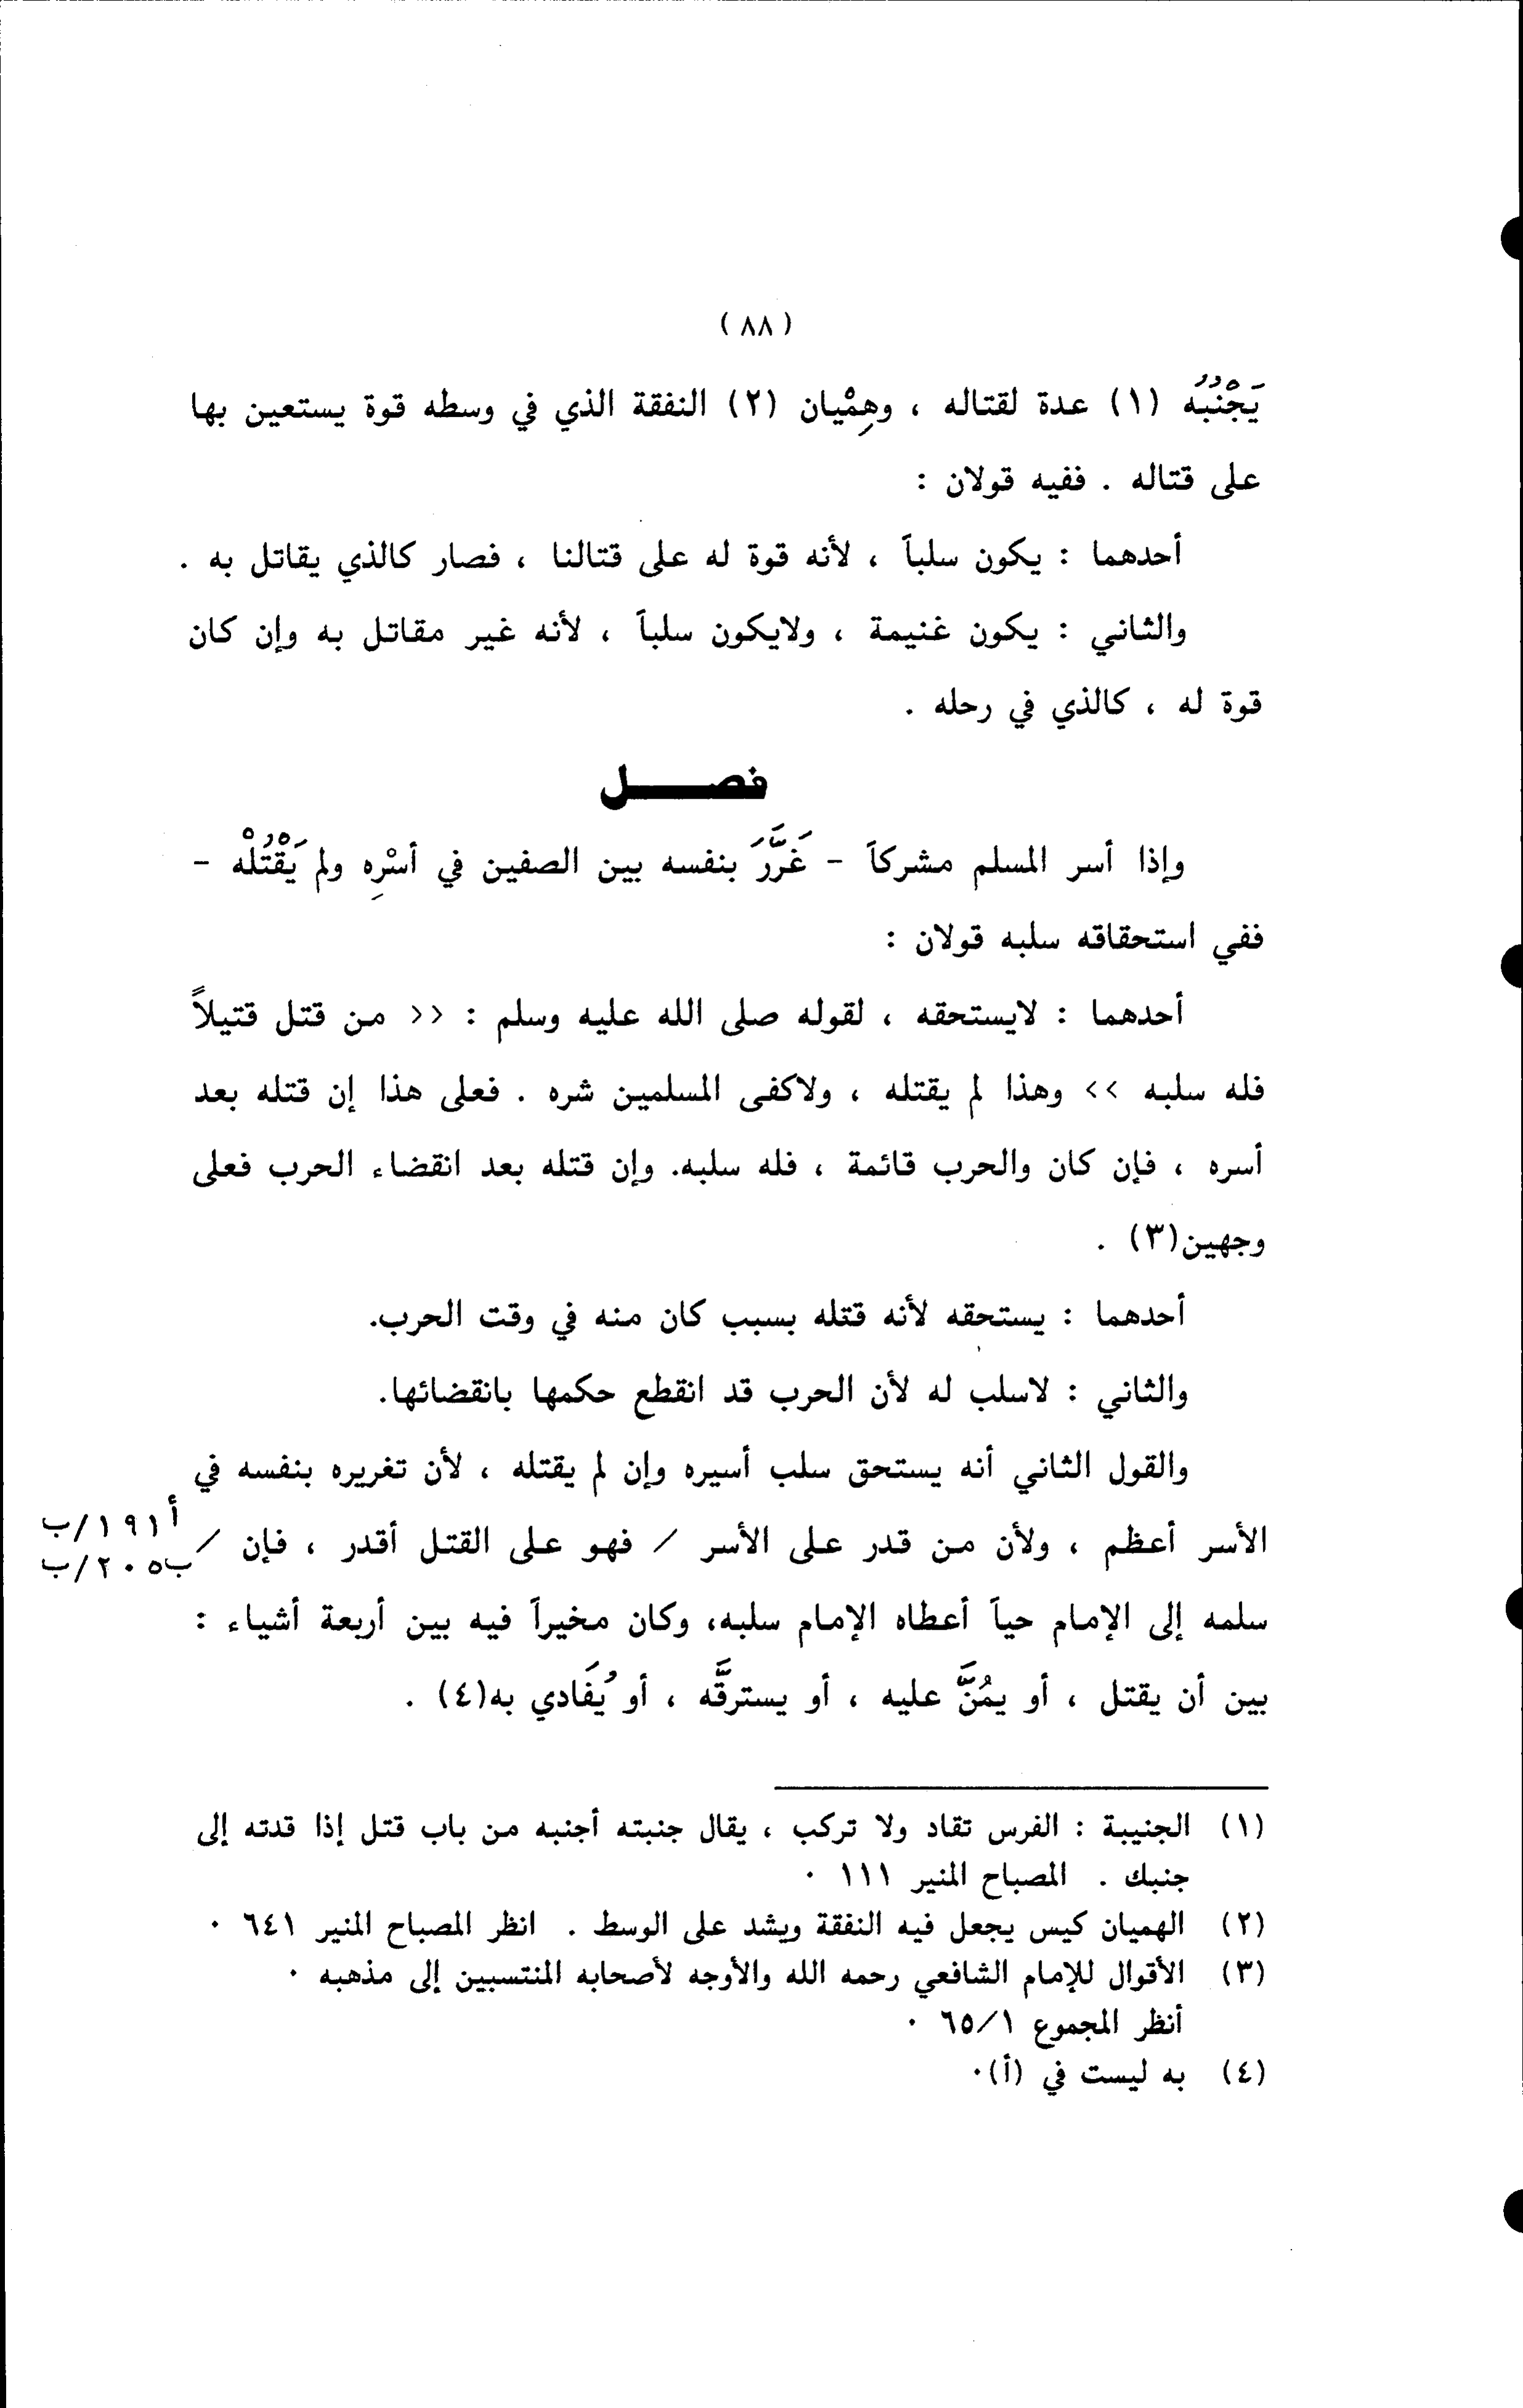 ( ٨٨ )
يَجْنُبُهُ (١) عدة لقتاله ، وهِمْيان (٢) النفقة الذي في وسطه قوة يستعين بها
على قتاله . ففيه قولان :
أحدهما : يكون سلباً ، لأنه قوة له على قتالنا ، فصار كالذي يقاتل به .
والثاني : يكون غنيمة ، ولايكون سلباً ، لأنه غير مقاتل به وإن كان
قوة له ، كالذي في رحله .
فصــــــل
وإذا أسر المسلم مشركاً - غَرَّرَ بنفسه بين الصفين في أسْرِه ولم يَقْتُلْه -
ففي استحقاقه سلبه قولان :
أحدهما : لايستحقه ، لقوله صلى الله عليه وسلم : << من قتل قتيلاً
فله سلبه >> وهذا لم يقتله ، ولاكفى المسلمين شره . فعلى هذا إن قتله بعد
أسره ، فإن كان والحرب قائمة ، فله سلبه. وإن قتله بعد انقضاء الحرب فعلى
وجهين(٣) .
أحدهما : يستحقه لأنه قتله بسبب كان منه في وقت الحرب.
والثاني : لاسلب له لأن الحرب قد انقطع حكمها بانقضائها.
والقول الثاني أنه يستحق سلب أسيره وإن لم يقتله ، لأن تغريره بنفسه في
الأسر أعظم ، ولأن من قدر على الأسر / فهو على القتل أقدر ، فإن /
أ١٩١/ب
ب٢٠٥/ب
سلمه إلى الإمام حياً أعطاه الإمام سلبه، وكان مخيراً فيه بين أربعة أشياء :
بين أن يقتل ، أو يمُنَّ عليه ، أو يسترقَّه ، أو يُفَادي به(٤) .
(١) الجنيبة : الفرس تقاد ولا تركب ، يقال جنبته أجنبه من باب قتل إذا قدته إلى
جنبك . المصباح المنير ١١١ .
(٢) الهميان كيس يجعل فيه النفقة ويشد على الوسط . انظر المصباح المنير ٦٤١ .
(٣) الأقوال للإمام الشافعي رحمه الله والأوجه لأصحابه المنتسبين إلى مذهبه .
أنظر المجموع ٦٥/١ .
(٤) به ليست في (أ).